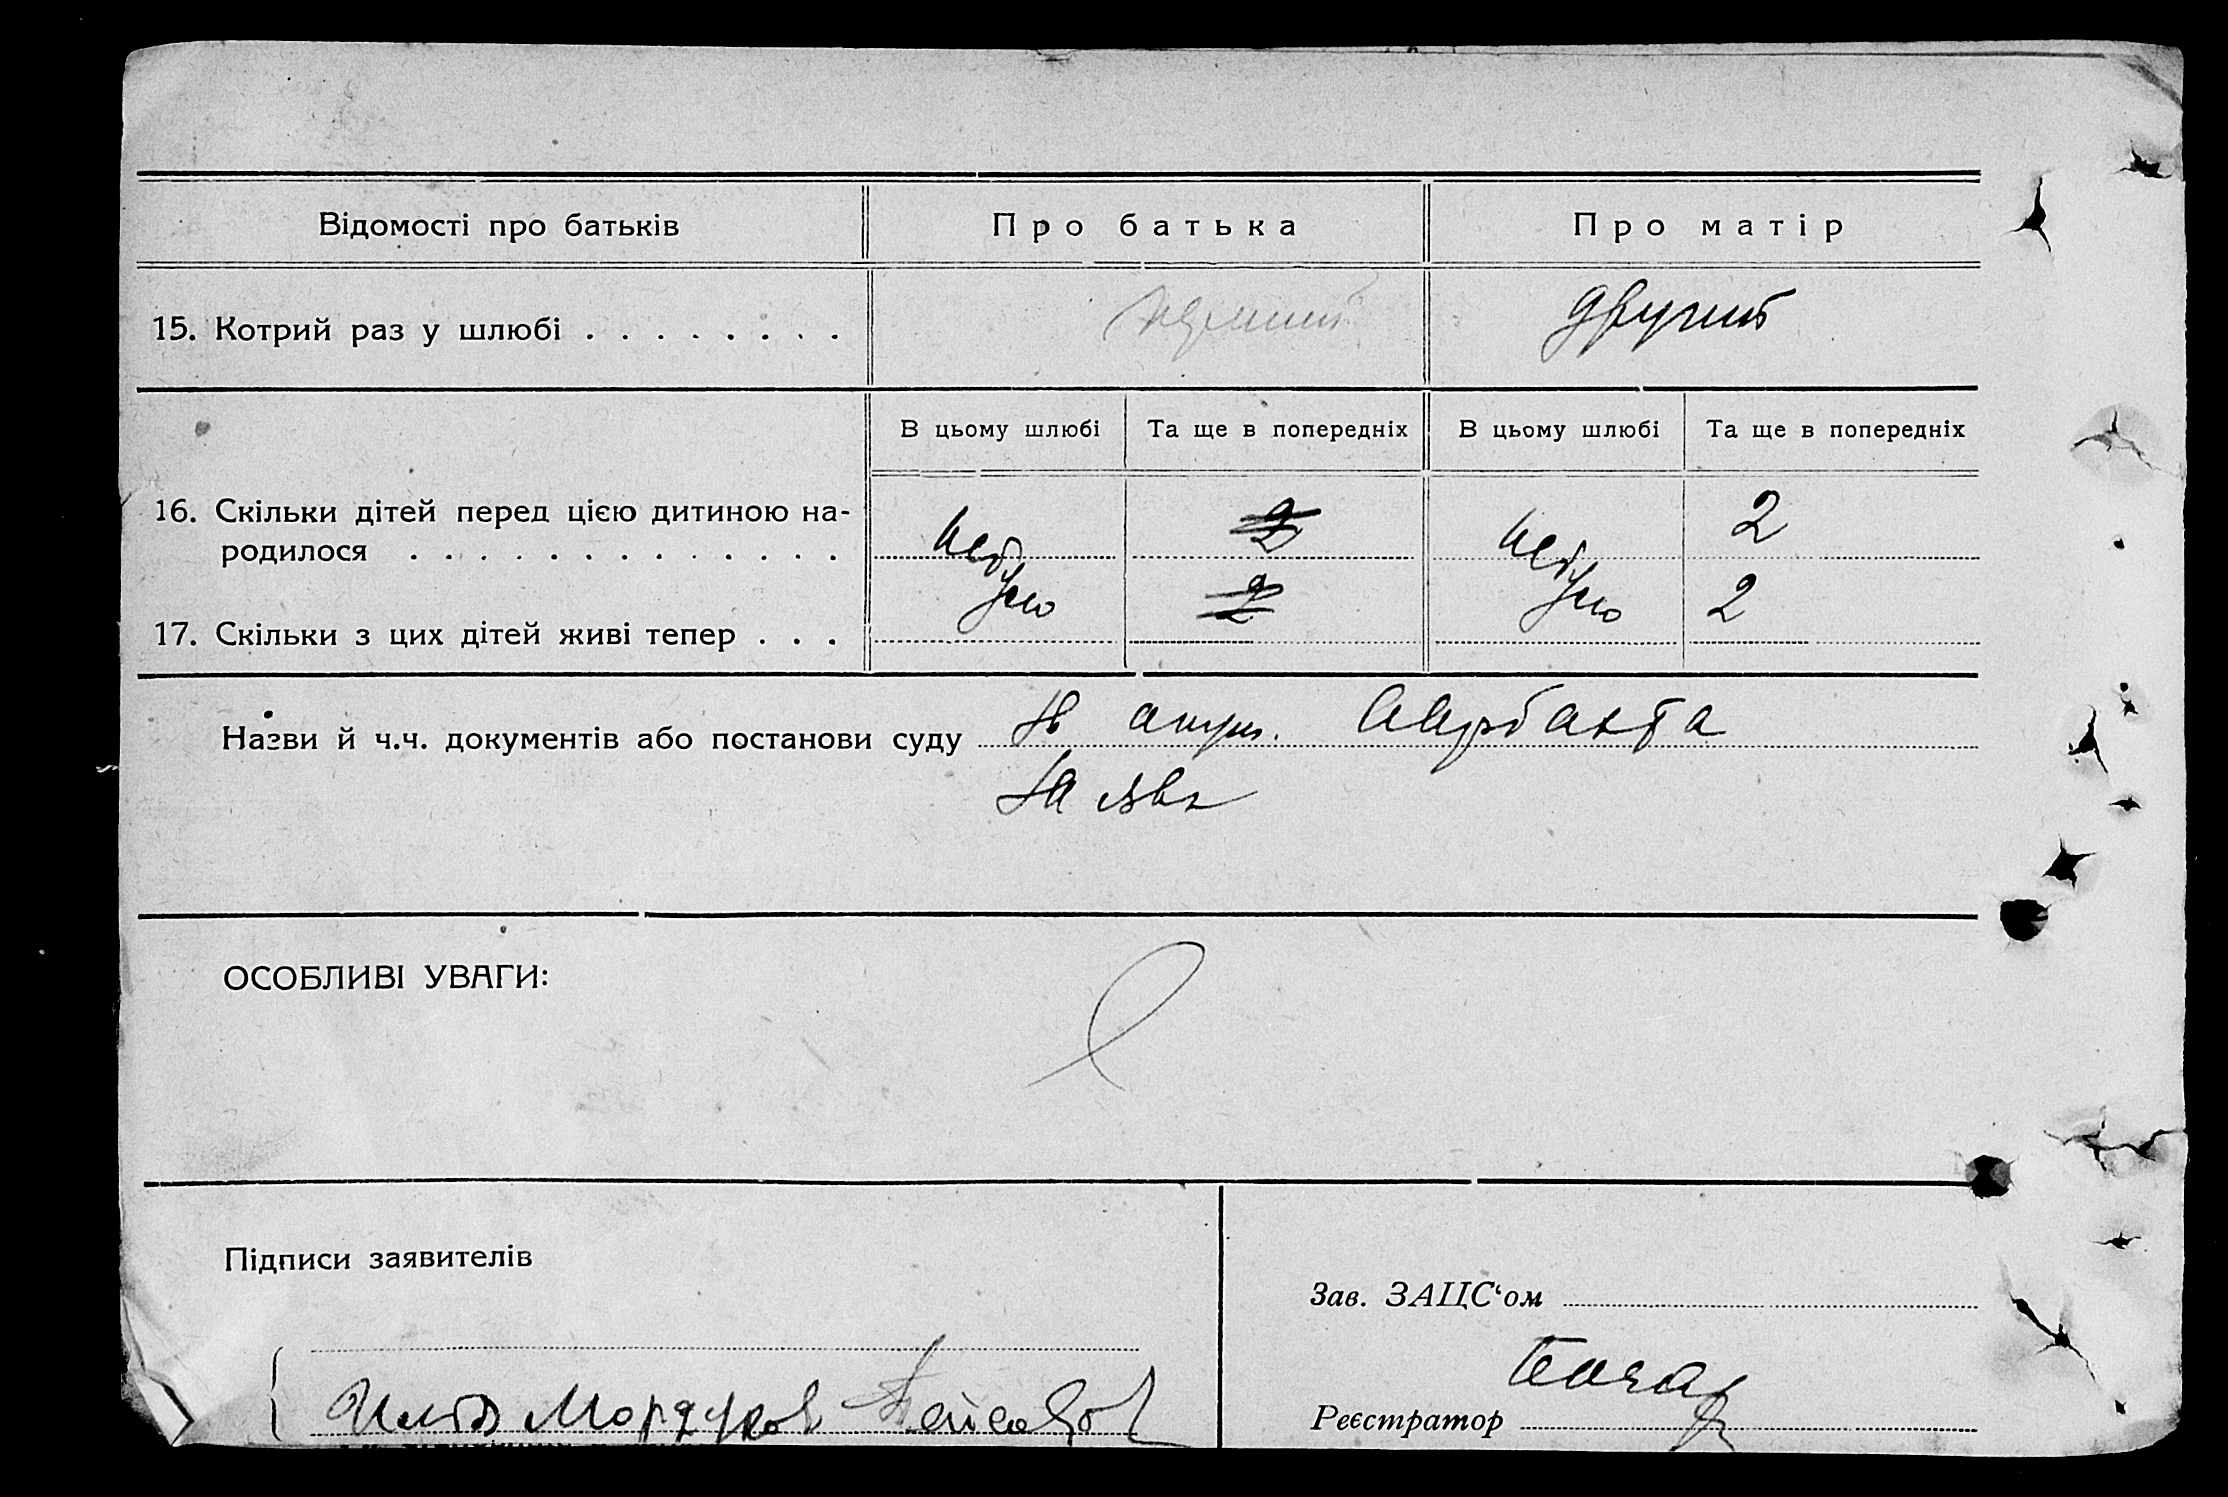 Відомості про батьків Про батька Про матір
15. Котрий раз у шлюбі . . . . . . . . перший другий
В цьому шлюбі Та ще в попередніх В цьому шлюбі Та ще в попередніх
16. Скільки дітей перед цією дитиною на-
родилося . . . . . . . . . . . . . не було 2 не було 2
17. Скільки з цих дітей живі тепер . . . 2 2
Назви й ч.ч. документів або постанови суду
ОСОБЛИВІ УВАГИ:
Підписи заявителів
Зав. ЗАЦС‘ом
Мордухов
Реєстратор